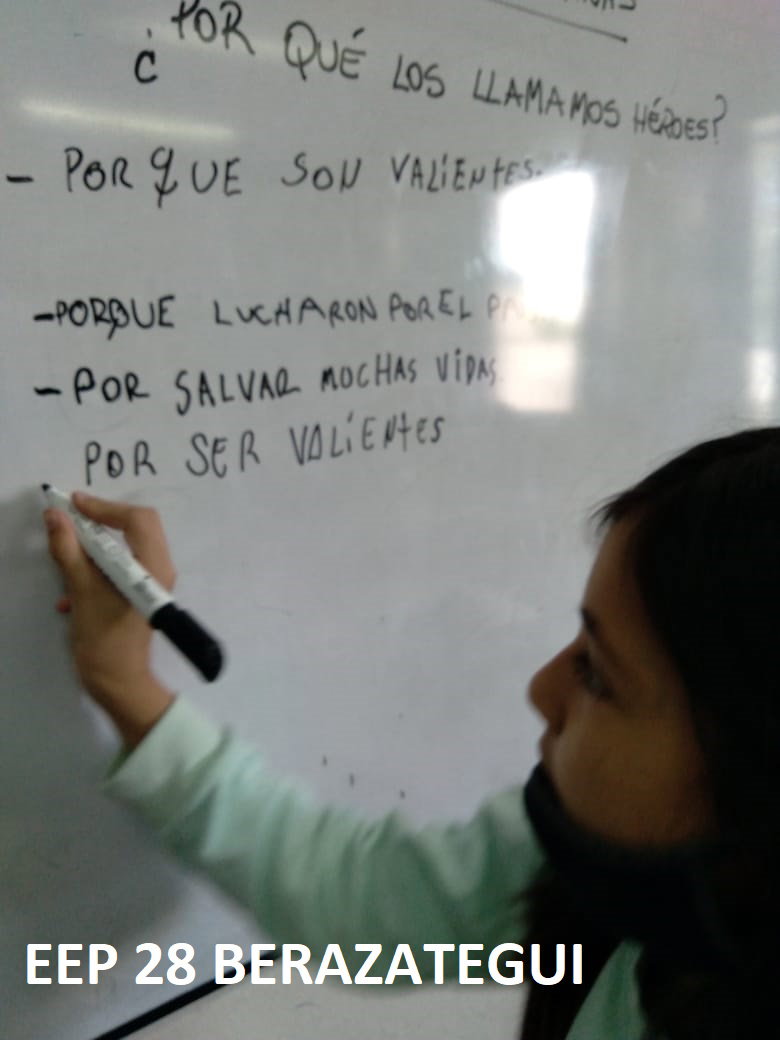 ¿POR QUÉ LOS LLAMAMOS HÉROES?
- PORQUE SON VALIENTES.
-PORQUE LUCHARON POR EL
- POR SALVAR MOCHAS VIDAS
POR SER VALIENTES
EEP 28 BERAZATEGUI